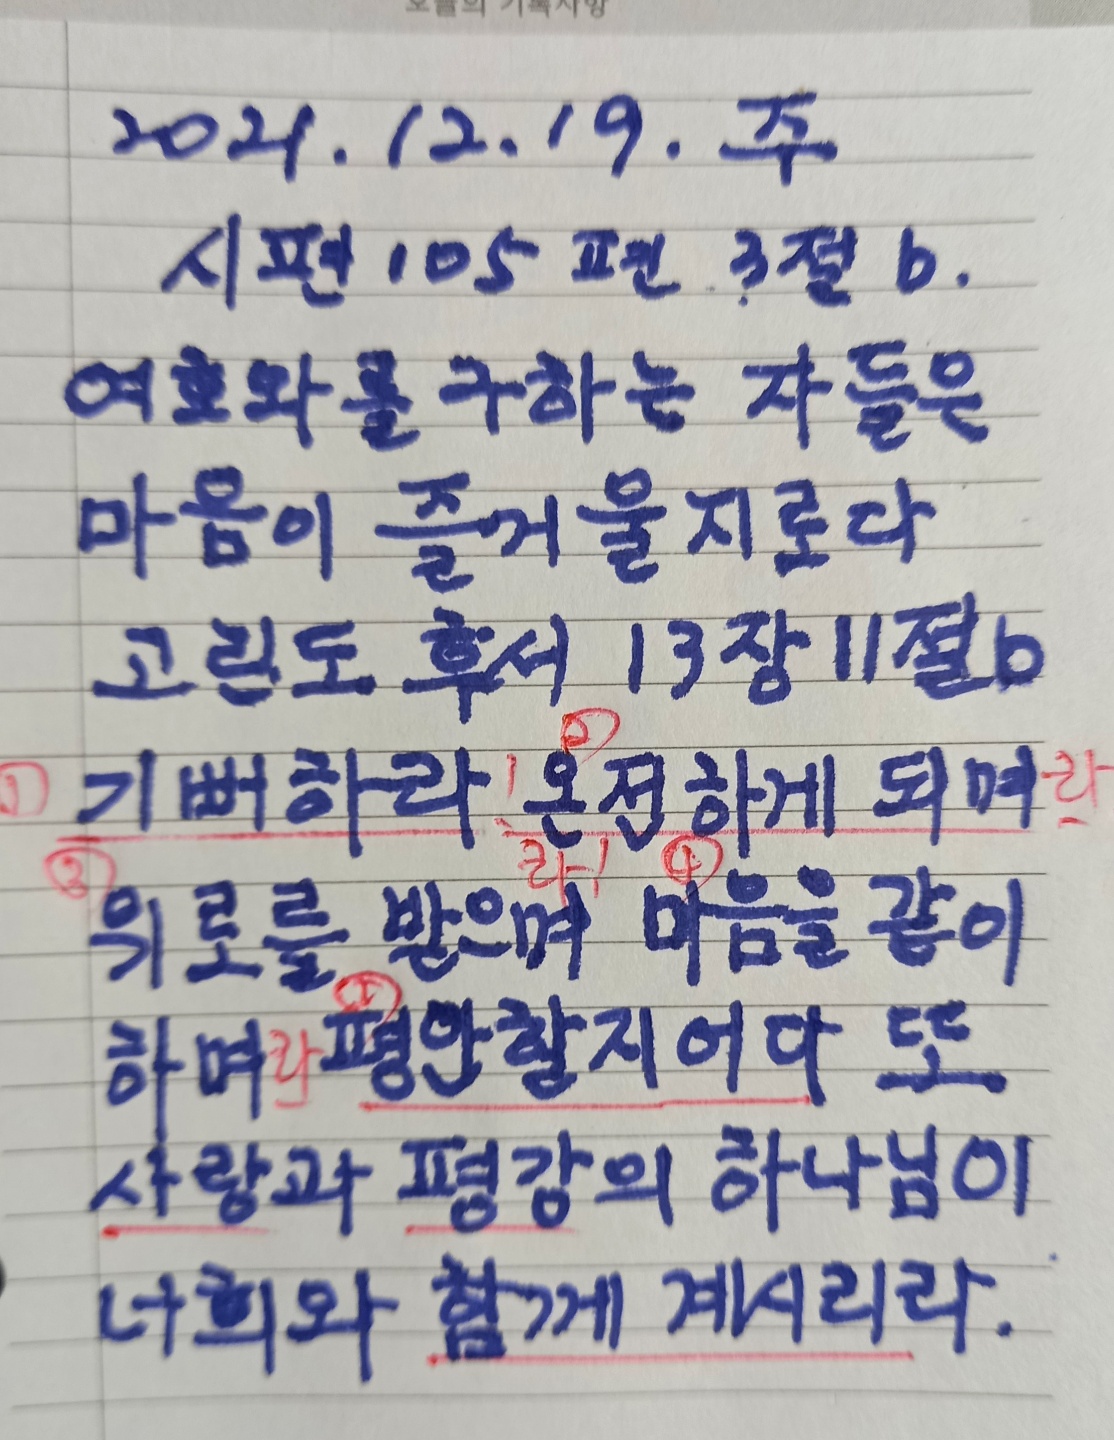 오늘의 기록사항
2021.12.19. 주
시편 105 편 3절 b.
여호와를 구하는 자들은
마음이 즐거울지로다
고린도 후서 13장 11절b
②
① 기뻐하라 온전하게 되며 라
③ 라! ④
위로를 받으며 마음을 같이
하며 라 평안할지어다 또
사랑과 평강의 하나님이
너희와 함께 계시리라.